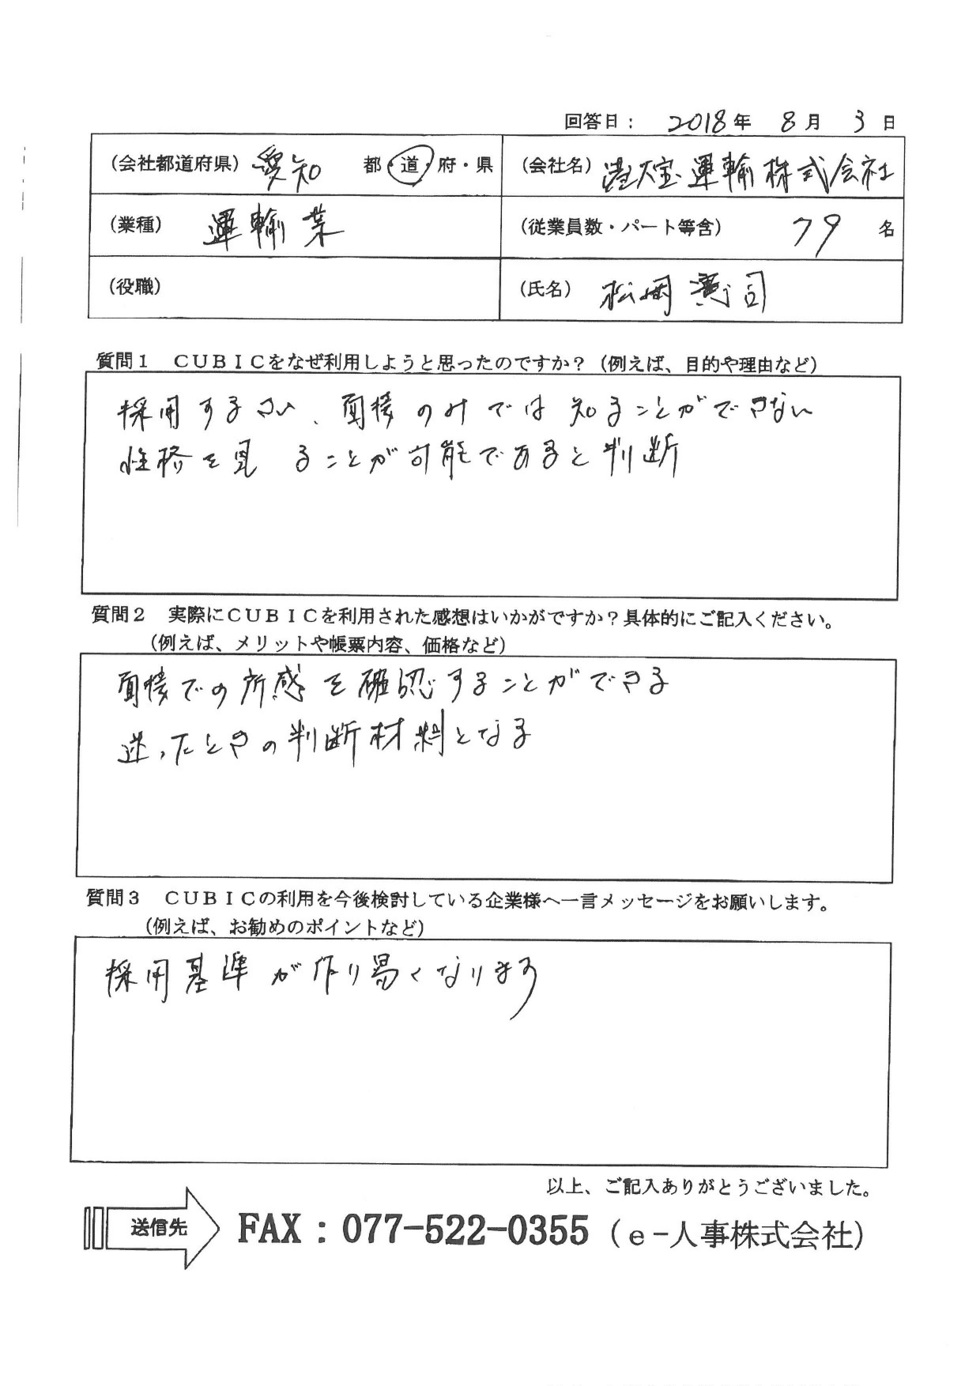 回答日： 2018年 8月 3日
（会社都道府県） 愛知 都・道・府・県 （会社名） 港大宝運輸株式会社
（業種） 運輸業 （従業員数・パート等含） 79 名
（役職） （氏名） 松岡憲司
質問１ ＣＵＢＩＣをなぜ利用しようと思ったのですか？（例えば、目的や理由など）
採用するさい、面接のみでは知ることができない
性格を見ることが可能であると判断
質問２ 実際にＣＵＢＩＣを利用された感想はいかがですか？具体的にご記入ください。
（例えば、メリットや帳票内容、価格など）
面接での所感を確認することができる
迷ったときの判断材料となる
質問３ ＣＵＢＩＣの利用を今後検討している企業様へ一言メッセージをお願いします。
（例えば、お勧めのポイントなど）
採用基準が作り易くなります
以上、ご記入ありがとうございました。
送信先 FAX：077-522-0355（ｅ－人事株式会社）